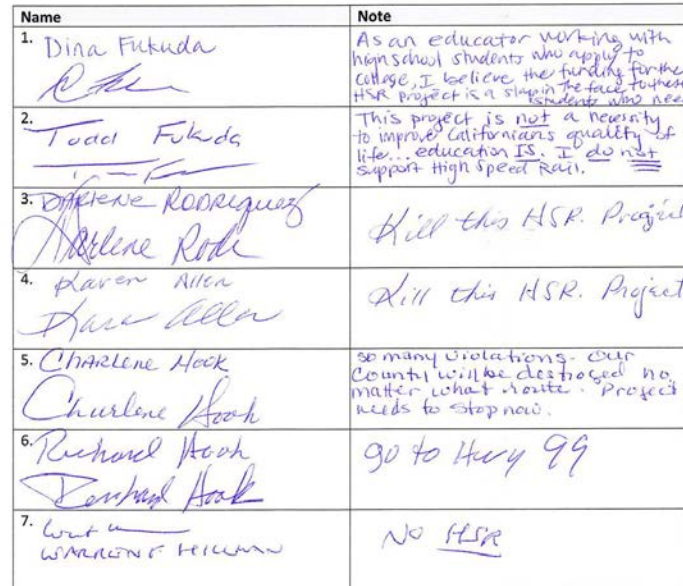 Name Note
1. Dina Fukuda
As an educator working with
high school students who apply to
college, I believe the funding for the
HSR project is a slap in the face to these
students who need
2. Todd Fukuda
This project is not a necessity
to improve Californians quality of
life... education IS. I do not
support High Speed Rail.
3. DARLENE RODRIGUEZ
Darlene Rodr
Kill this HSR. Project
4. Karen Allen
Karen Allen
Kill this HSR. Project
5. CHARLENE HOOK
Charlene Hook
so many violations. Our
County will be destroyed no
matter what route. Project
needs to stop now.
6. Richard Hook
Richard Hook
go to Hwy 99
7.
WARREN F HILLMAN
NO HSR